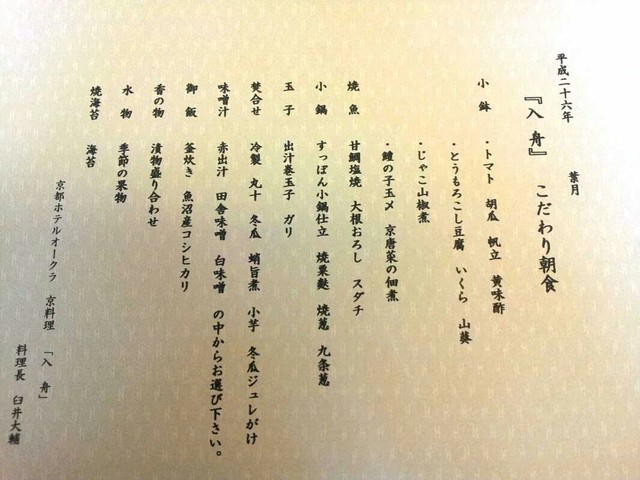 平成二十六年　葉月
『入舟』　こだわり朝食
小鉢　・トマト　胡瓜　帆立　黄味酢
・とうもろこし豆腐　いくら　山葵
・じゃこ山椒煮
・鱧の子玉〆　京唐菜の佃煮
焼魚　甘鯛塩焼　大根おろし　スダチ
小鍋　すっぽん小鍋仕立　焼粟麩　焼葱　九条葱
玉子　出汁巻玉子　ガリ
焚合せ　冷製　丸十　冬瓜　蛸旨煮　小芋　冬瓜ジュレがけ
味噌汁　赤出汁　田舎味噌　白味噌　の中からお選び下さい。
御飯　釜炊き　魚沼産コシヒカリ
香の物　漬物盛り合わせ
水物　季節の果物
焼海苔　海苔
京都ホテルオークラ　京料理　「入舟」
料理長　臼井大輔